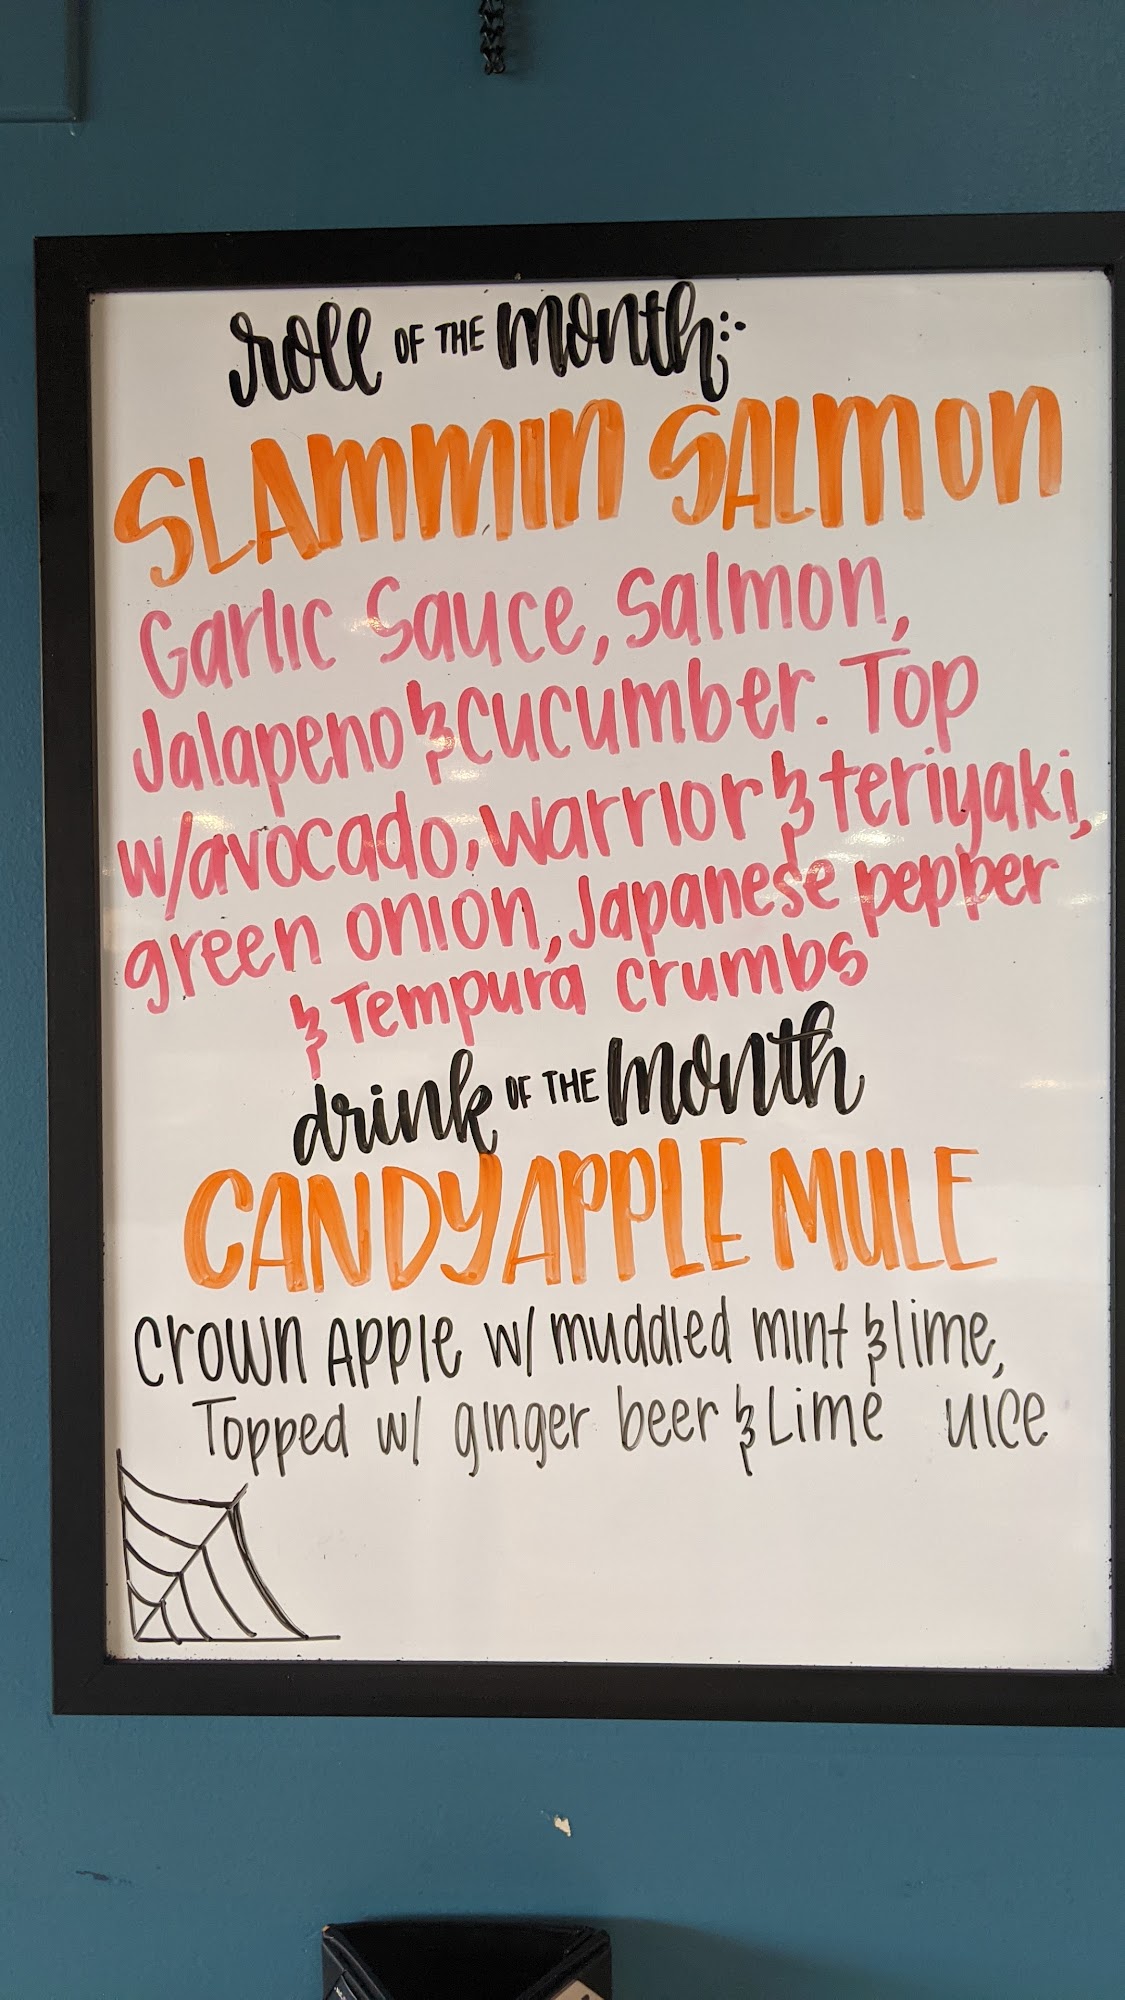 roll OF THE month:
SLAMMIN SALMON
Garlic Sauce, Salmon,
Jalapeno & cucumber. Top
w/avocado, warrior & teriyaki,
green onion, Japanese pepper
& Tempura crumbs
drink OF THE month
CANDY APPLE MULE
Crown Apple w/ muddled mint & lime,
Topped w/ ginger beer & Lime uice